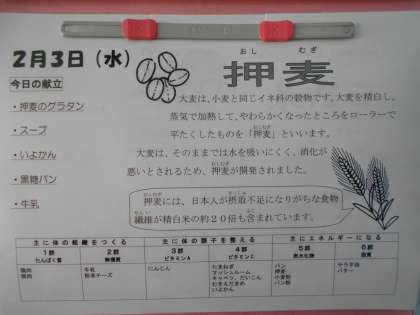 2月3日（水）
今日の献立
・押麦のグラタン
・スープ
・いよかん
・黒糖パン
・牛乳
おし むぎ
押麦
大麦は、小麦と同じイネ科の穀物です。大麦を精白し、
蒸気で加熱して、やわらかくなったところをローラーで
おしむぎ
平たくしたものを「押麦」といいます。
大麦は、そのままでは水を吸いにくく、消化が
おしむぎ
悪いとされるため、押麦が開発されました。
おしむぎ せっしゅ
押麦には、日本人が摂取不足になりがちな食物
せんい ふく
繊維が精白米の約２０倍も含まれています。
主に体の組織をつくる 主に体の調子を整える主にエネルギーになる
1群 2群 3群 4群 5群 6群
たんぱく質 無機質 ビタミンA ビタミンC 炭水化物 脂質
鶏肉 牛乳 にんじん たまねぎ パン サラダ油
粉末チーズ マッシュルーム 押麦 バター
キャベツ、だいこん 小麦粉
パン粉
いよかん 砂糖